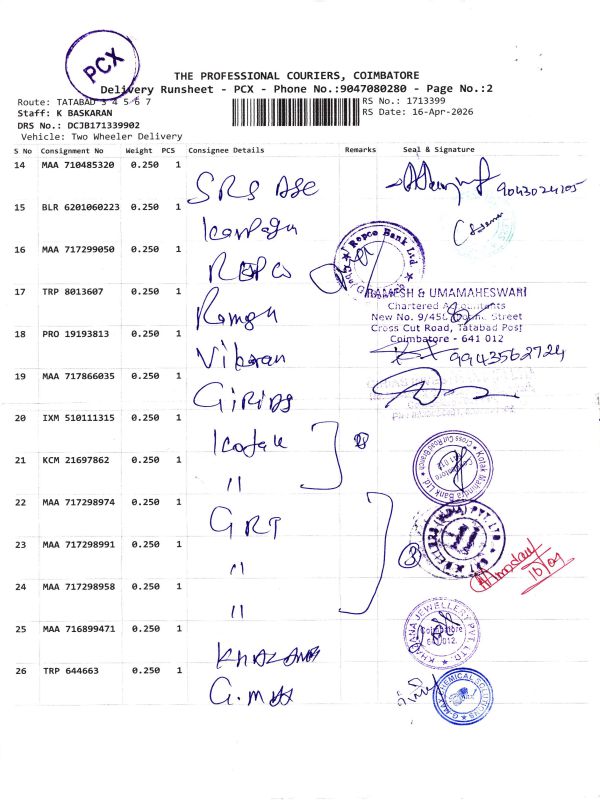 PCX
THE PROFESSIONAL COURIERS, COIMBATORE
Delivery Runsheet - PCX - Phone No.:9047080280 - Page No.:2
Route: TATABAD 3 4 5 6 7
RS No.: 1713399
Staff: K BASKARAN
RS Date: 16-Apr-2026
DRS No.: DCJB171339902
Vehicle: Two Wheeler Delivery
S No Consignment No Weight PCS Consignee Details Remarks Seal & Signature
14 MAA 710485320 0.250 1
SRS
9043024105
15 BLR 6201060223 0.250 1
16 MAA 717299050 0.250 1
REPCO
Repco Bank Ltd.
17 TRP 8013607 0.250 1
Ramesh
RAMESH & UMAMAHESWARI
Chartered Accountants
New No. 9/45
Street
Cross Cut Road, Tatabad Post
Coimbatore - 641 012
18 PRO 19193813 0.250 1
Vikaran
9943562724
19 MAA 717866035 0.250 1
GIRIAS
20 IXM 510111315 0.250 1
Kotak
21 KCM 21697862 0.250 1
"
Kotak Mahindra Bank Ltd
Cross Cut Road Branch
22 MAA 717298974 0.250 1
GRT
3
23 MAA 717298991 0.250 1
"
24 MAA 717298958 0.250 1
"
25 MAA 716899471 0.250 1
KHAZANA
KHAZANA JEWELLERY PVT. LTD.
Coimbatore
26 TRP 644663 0.250 1
G.MAX
G-MAX CHEMICAL SOLUTIONS